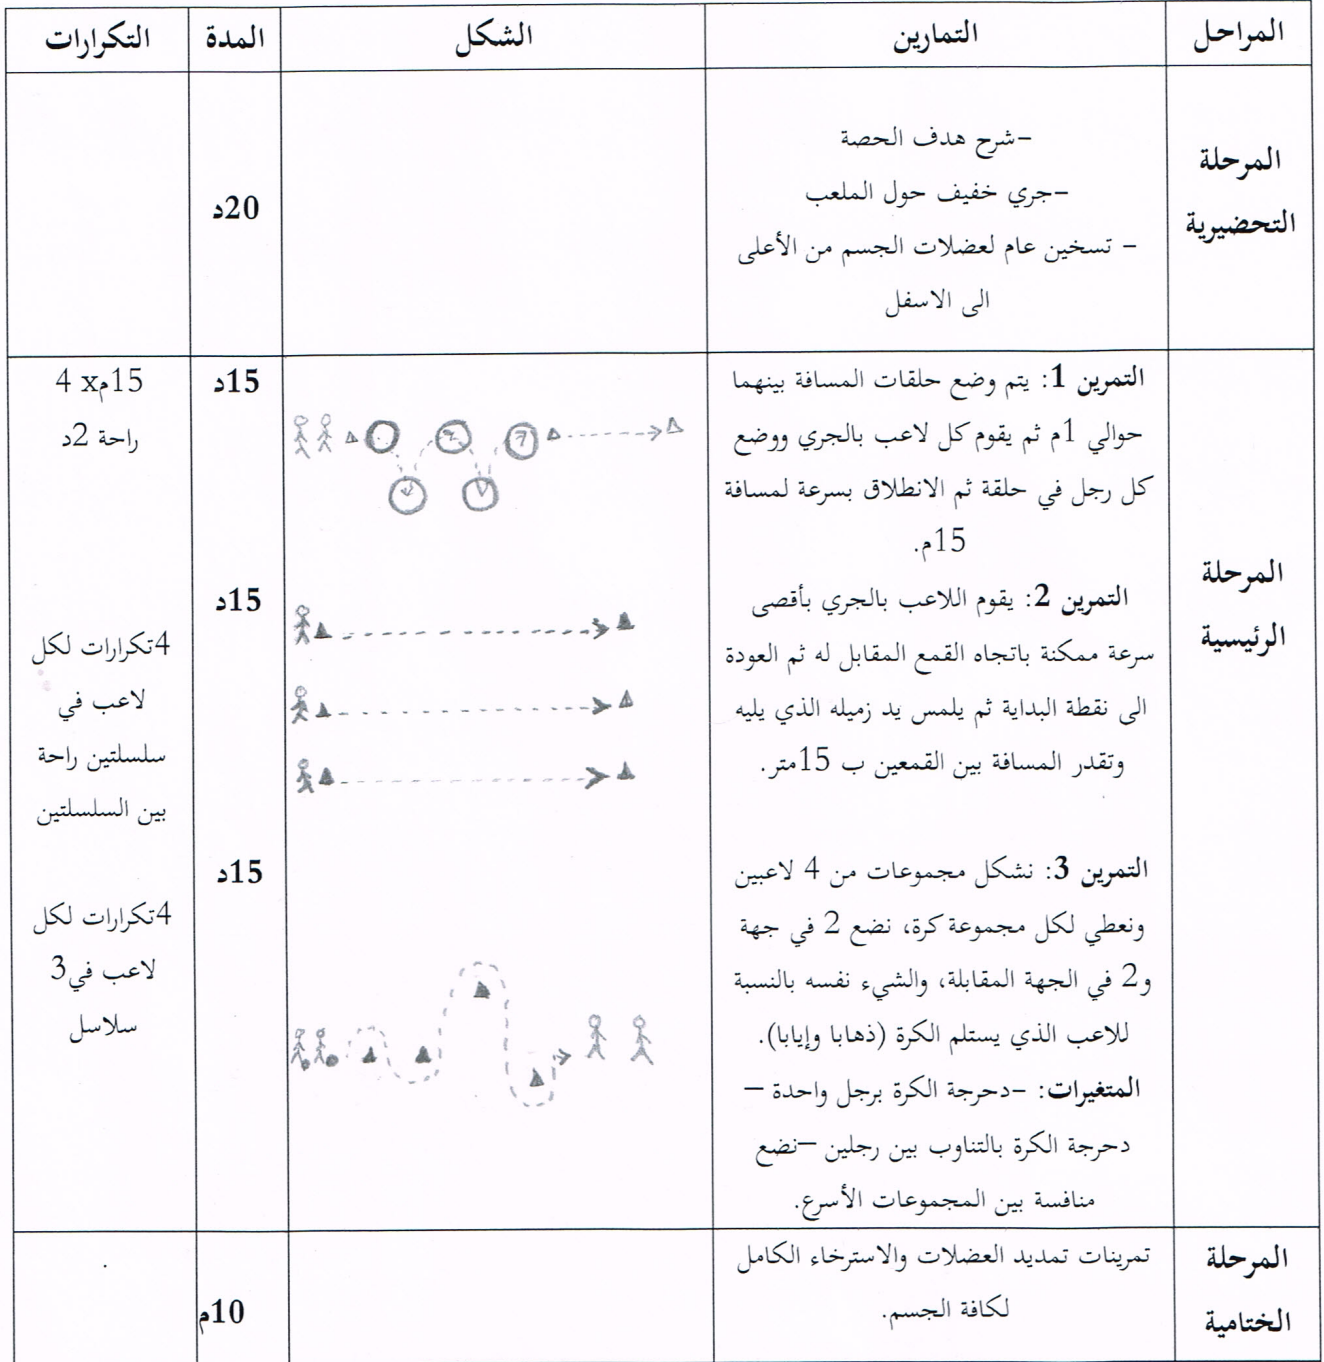 المراحل
التمارين
الشكل
المدة
التكرارات
المرحلة
التحضيرية
-شرح هدف الحصة
-جري خفيف حول الملعب
- تسخين عام لعضلات الجسم من الأعلى
الى الاسفل
20د
المرحلة
الرئيسية
التمرين 1: يتم وضع حلقات المسافة بينهما
حوالي 1م ثم يقوم كل لاعب بالجري ووضع
كل رجل في حلقة ثم الانطلاق بسرعة لمسافة
15م.
التمرين 2: يقوم اللاعب بالجري بأقصى
سرعة ممكنة باتجاه القمع المقابل له ثم العودة
الى نقطة البداية ثم يلمس يد زميله الذي يليه
وتقدر المسافة بين القمعين ب 15متر.
التمرين 3: نشكل مجموعات من 4 لاعبين
ونعطي لكل مجموعة كرة، نضع 2 في جهة
و2 في الجهة المقابلة، والشيء نفسه بالنسبة
للاعب الذي يستلم الكرة (ذهابا وإيابا).
المتغيرات: -دحرجة الكرة برجل واحدة –
دحرجة الكرة بالتناوب بين رجلين –نضع
منافسة بين المجموعات الأسرع.
15د
15د
15د
15مx 4
راحة 2د
4تكرارات لكل
لاعب في
سلسلتين راحة
بين السلسلتين
4تكرارات لكل
لاعب في3
سلاسل
المرحلة
الختامية
تمرينات تمديد العضلات والاسترخاء الكامل
لكافة الجسم.
10م